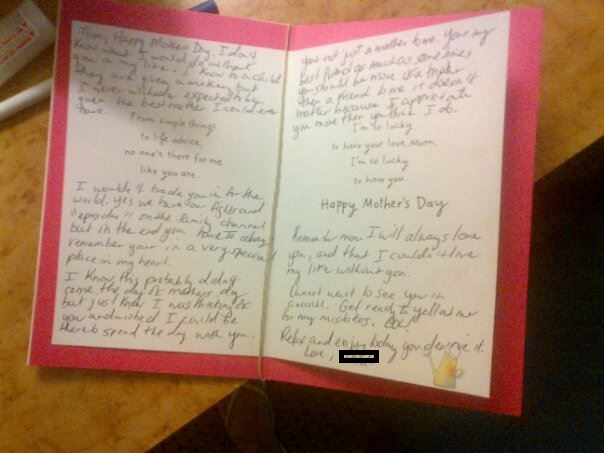 Mom, Happy Mothers Day I don't
know what I would do without
you in my life. I know to a child
they are given a mother, but
I never wished or expected to be
given the best mother I could ever
have.
From simple things
to life advice,
no one's there for me
like you are.
I wouldn't trade you in for the
world. Yes we have our fights and
"episodes" on the family channel
but in the end you have to always
remember your in a very special
place in my heart.
I know this probably didn't
come the day of mothers day
but just know I was thinking of
you and wished I could be
there to spend the day with you.
your not just a mother to me. your my
best friend as much as some times
you should be more of a mother
then a friend to me it doesn't
matter because I appriciate
you more then you think I do.
I'm so lucky
to have your love, Mom,
I'm so lucky
to have you.
Happy Mother's Day
Remember mom I will always love
you, and that I couldn't live
my life without you.
Cannot wait to see you in
Get ready to yell at me
for my mistakes.
Relax and enjoy today you deserve it.
Love,